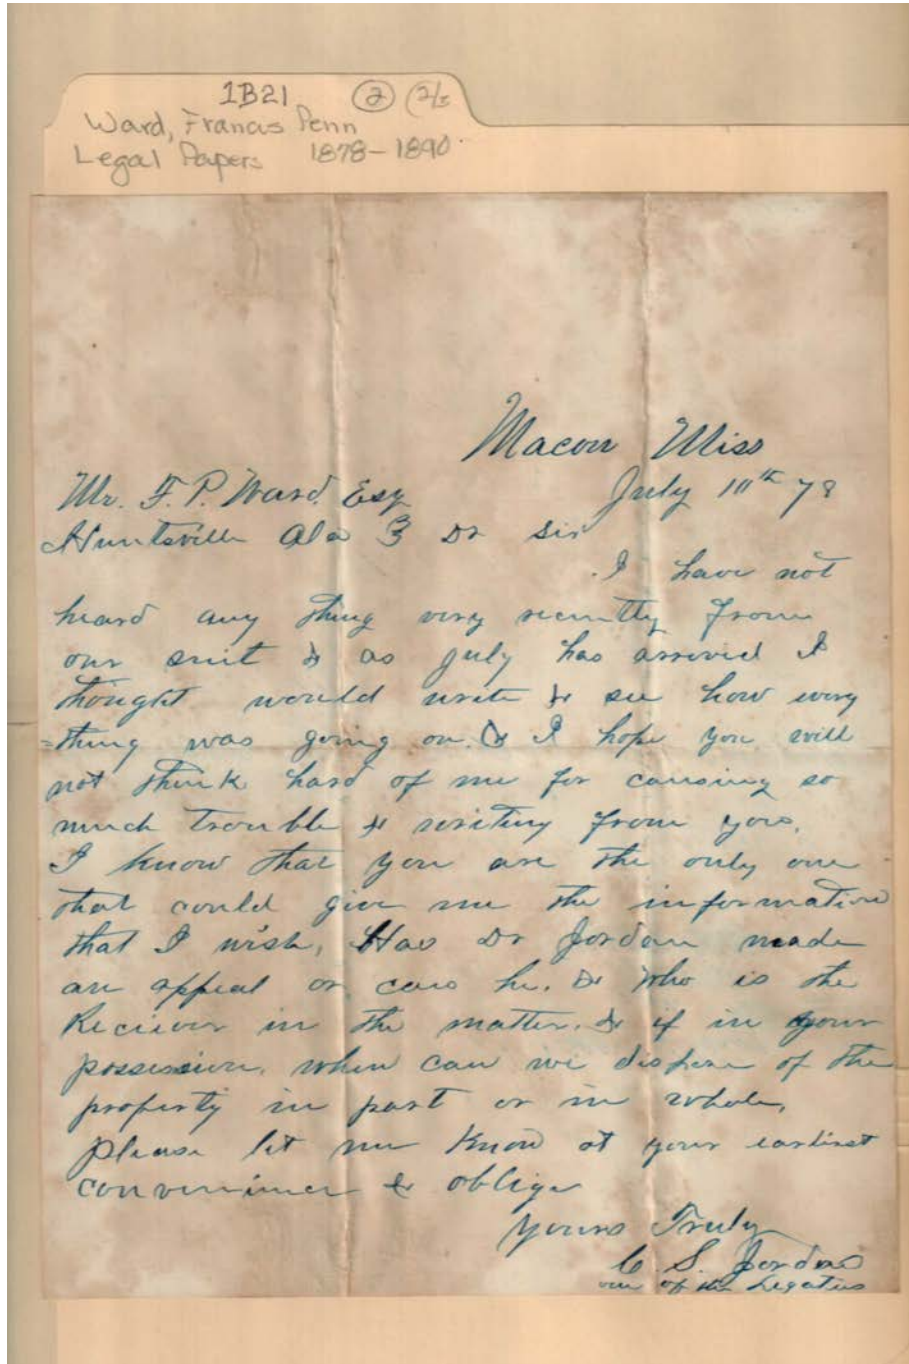 1B21 2 2/3
Ward, Francis Penn
Legal Papers 1878-1890
Macon Miss
Mr. F. P. Ward. Esq July 10th 78
Huntsville Ala } Dr Sir
I have not
heard any thing very recently from
our suit & as July has arrived I
thought would write & see how every
=thing was going on. & I hope you will
not think hard of me for causing so
much trouble & writing from you.
I know that you are the only one
that could give me the information
that I wish, Has Dr Jordan made
an appeal or can he. & who is the
Reciever in the matter. & if in your
possession. when can we dispose of the
property in part or in whole,
please let me know at your earliest
convenience & oblige
Yours Truly
C. S. Jordan
one of the Legatees